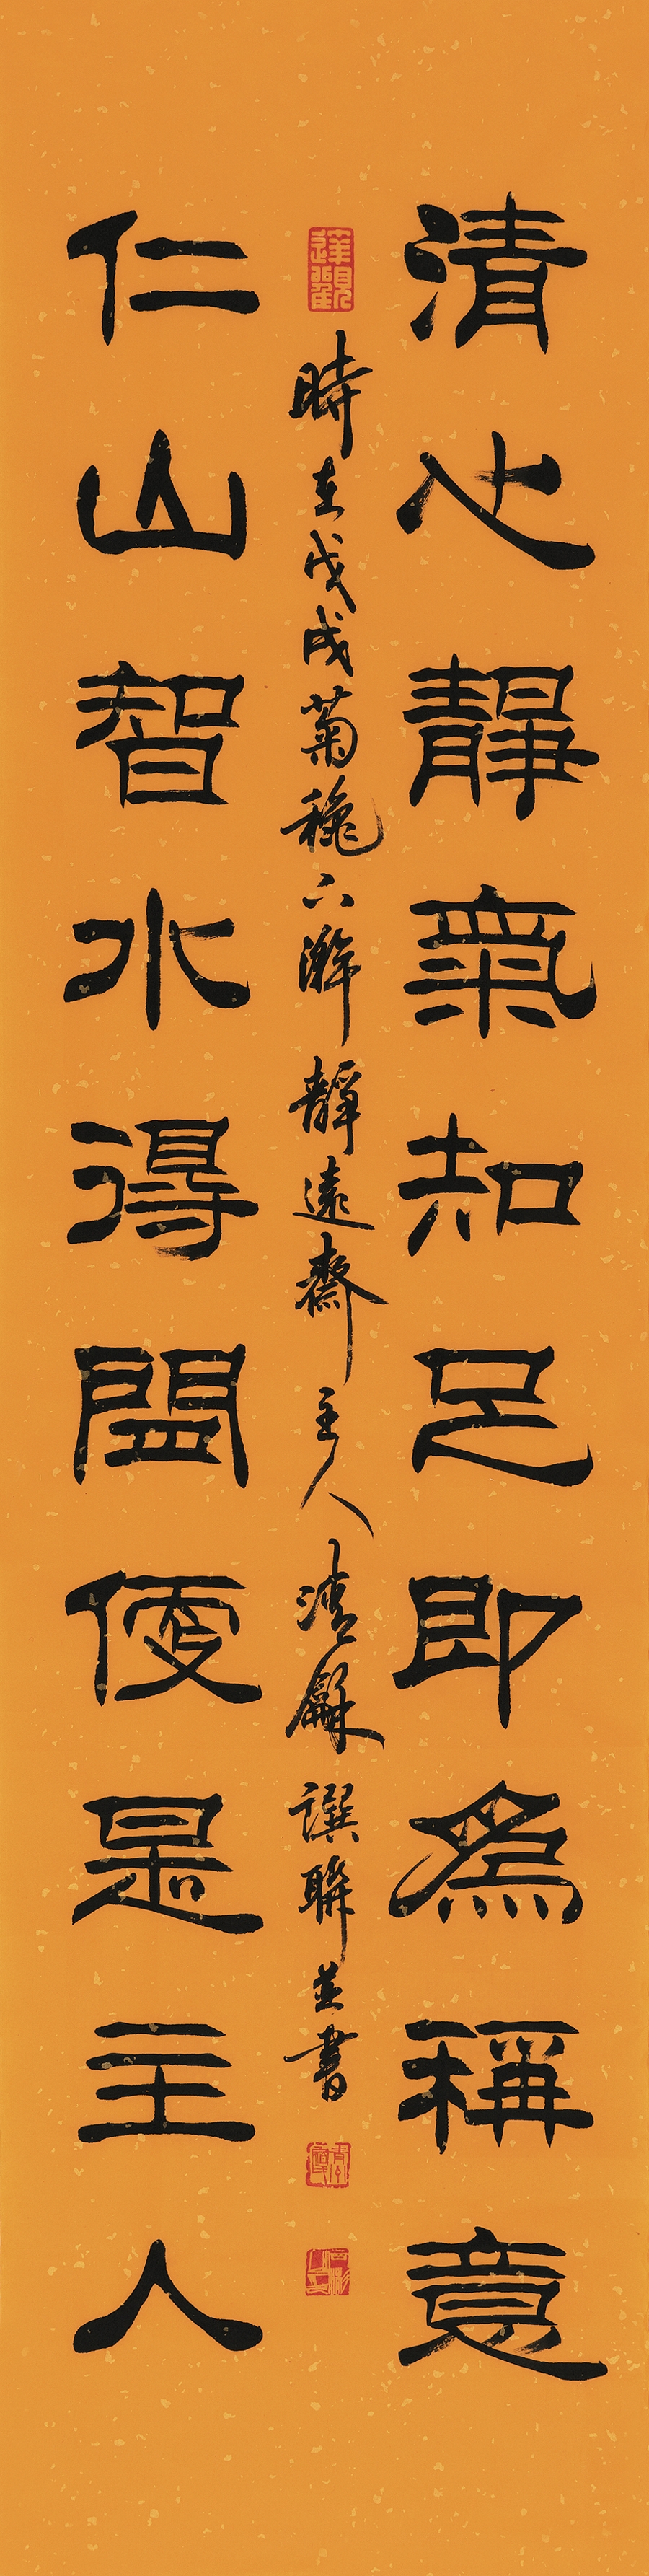 清心靜氣知足即為稱意
時在戊戌菊穐下澣靜遠齋主人清龢譔聯並書
仁山智水得閒便是主人